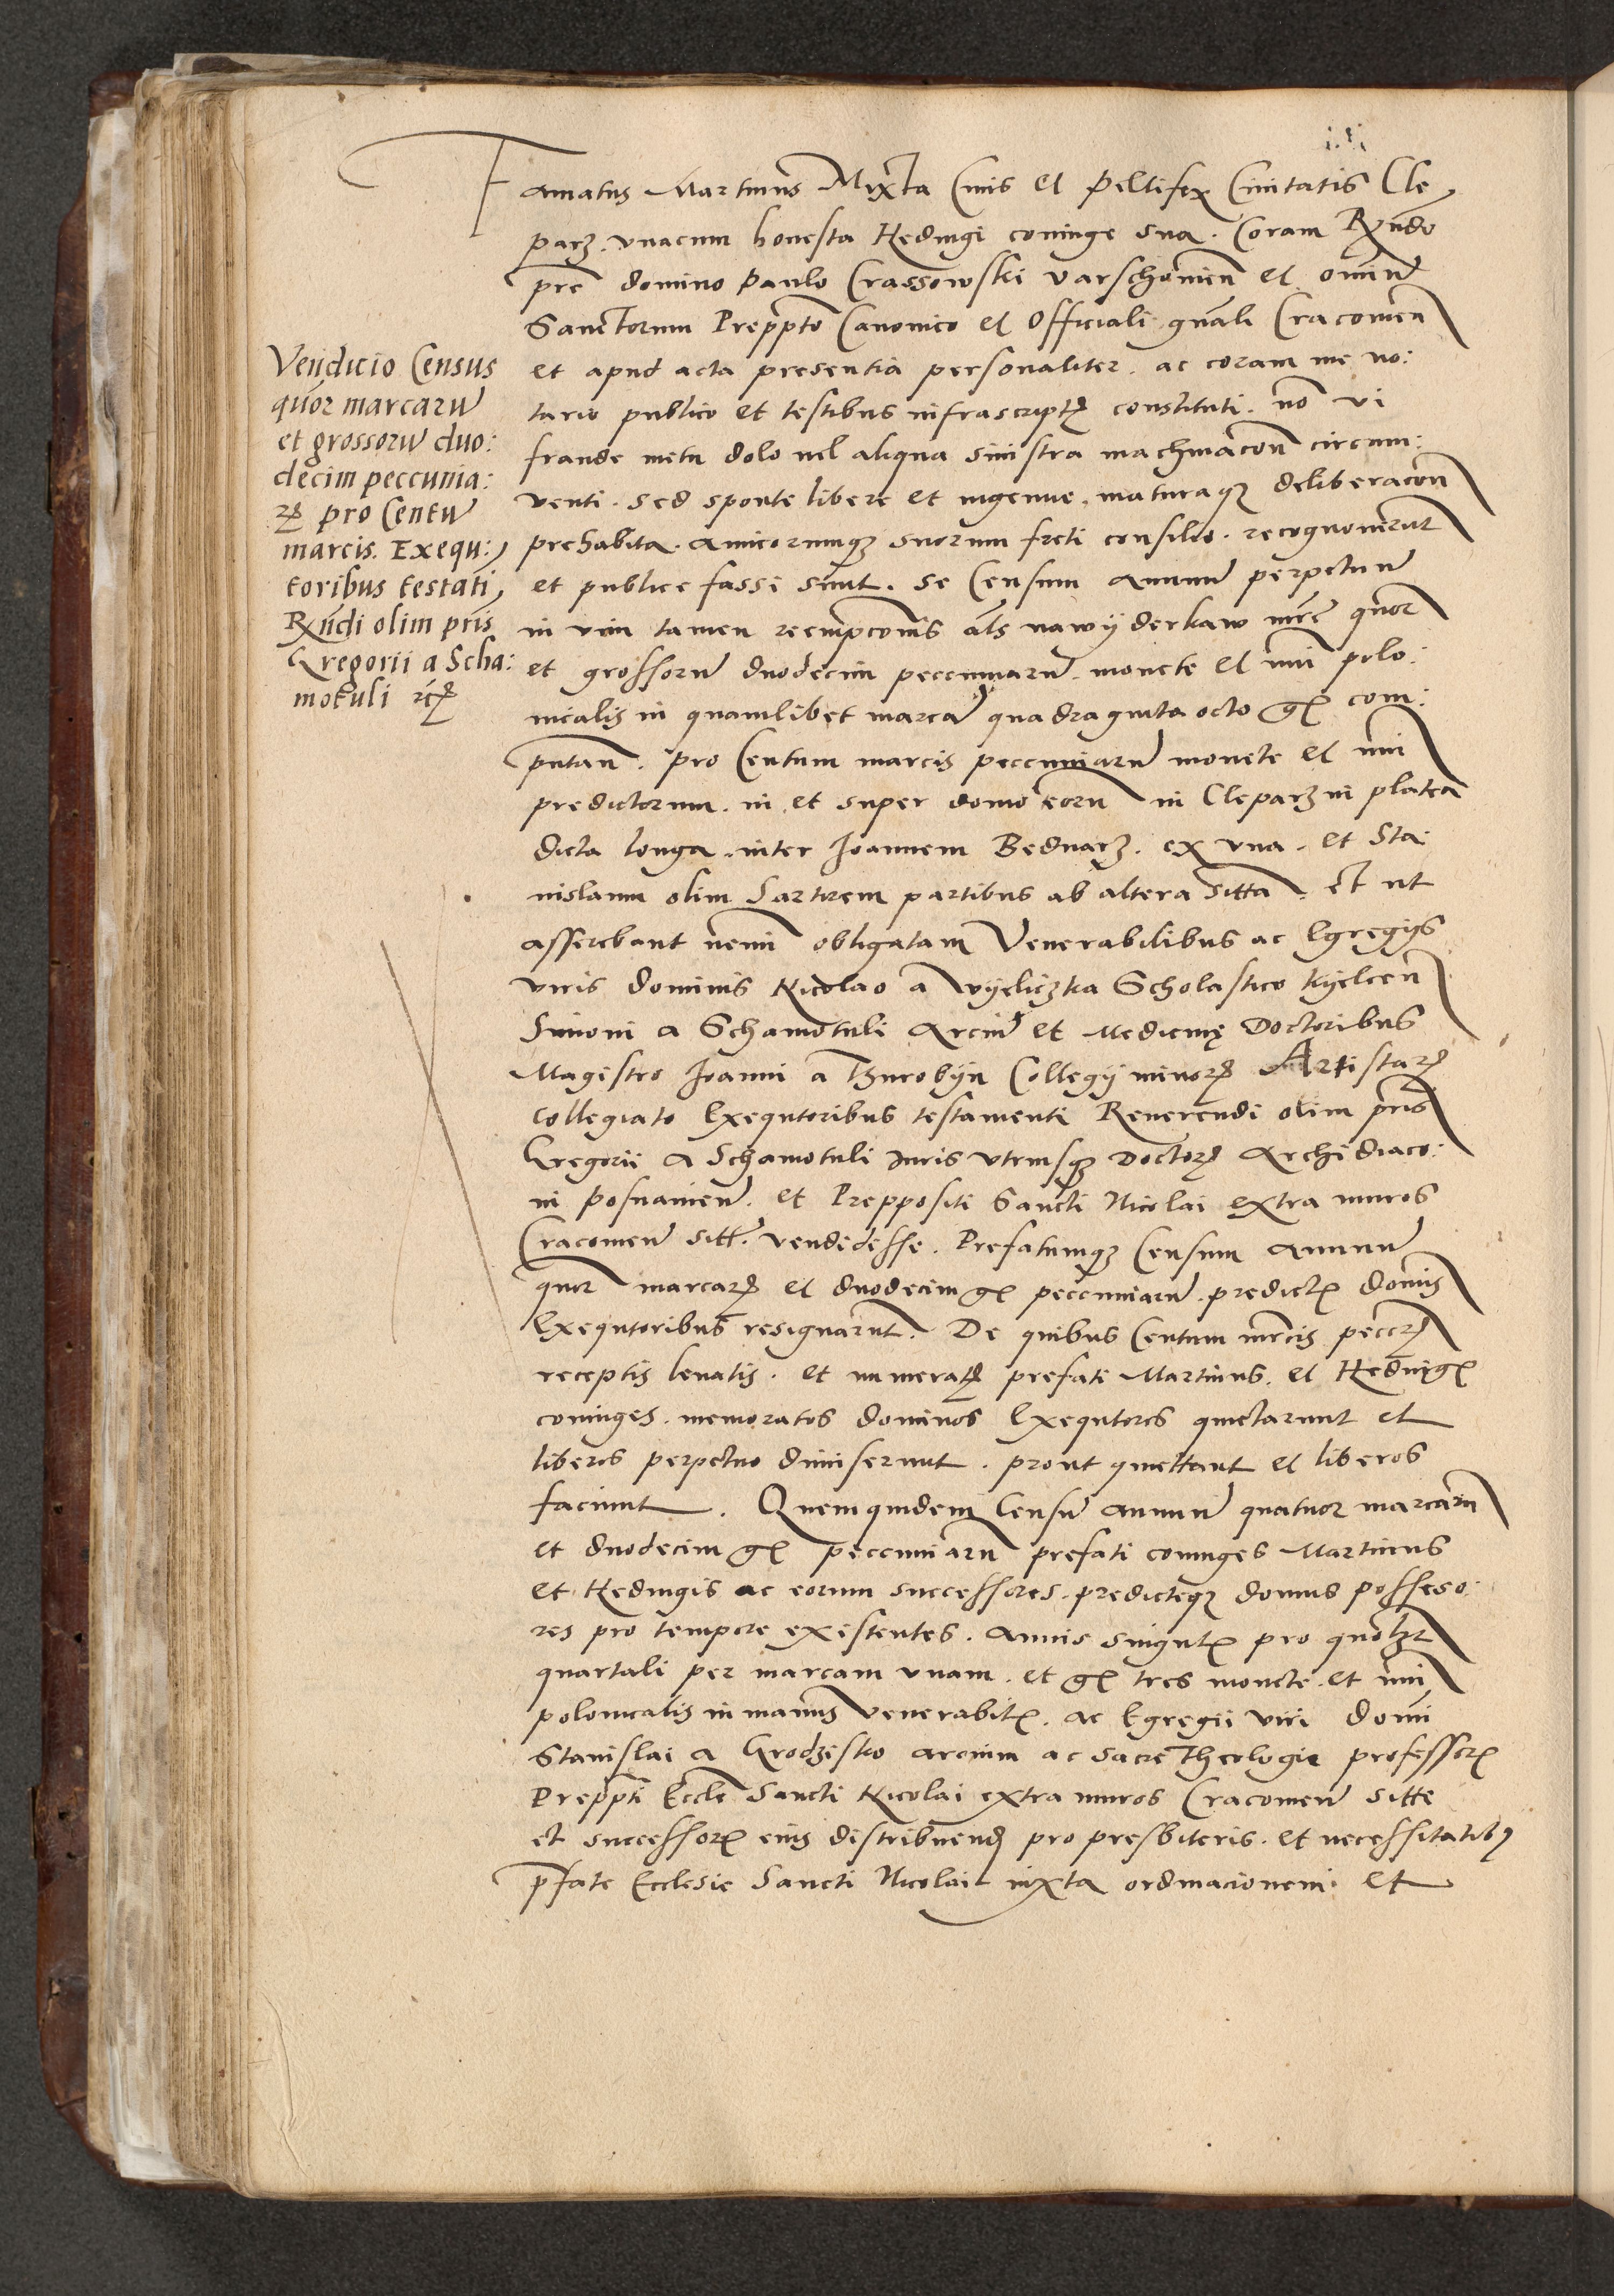 Vendicio Census
quor marcaru
et grossoru duo:
decim peccunia:
rꝝ pro Centu
marcis. Exequ:
toribus testati
Rndi olim pris
Gregorii a Scha:
motuli rcꝝ
Famatus Martinus Mixta Civis et Pellifex Civitatis Cle
parz . unacum honesta Hedwigi coniuge sua . Coram Rndo
pre domino Paulo Crassowski varschovien et omniu
Sanctorum Preppto Canonico et Officiali gnali Cracovien
et apud acta presentia personaliter . ac coram me no:
tario publico et testibus infrascriptꝭ constituti . no vi
fraude metu dolo vel aliqua sinistra machinacon circum:
venti . sed sponte libere et ingenue . maturaqꝫ deliberacon
prehabita . amicorumqꝫ suorum freti consilio . recognoverut
et publice fassi sunt . se Censum annuu perpetuu
in vim tamen reempconis als nawyderkaw mrc quor
et grossoru duodecim peccuniaru . monete et nui polo:
nicalis in quamlibet marca quadraginta octo gꝭ com:
putan . pro Centum marcis peccuniaru monete et nui
predictorum . in et super domo eoru in Cleparz in platea
dicta longa . inter Joannem Bednarz . ex una . et Sta:
nislaum olim Sartorem partibus ab altera sitta . et ut
asserebant nemi obligatam Venerabilibus ac Egregiis
viris dominis Nicolao a wyeliczka Scholastico kyelcen
Simoni a Schamotuli Arciu et Medicinę Doctoribus
Magistro Joanni a Thurobyn Collegij minorꝭ Artistarꝝ
collegiato Exequtoribus testamenti Reverendi olim pris
Gregorii a Schamotuli Juris utriusqꝫ Doctorꝭ Archidiaco:
ni posnanien . et Preppositi Sancti Nicolai extra muros
Cracovien sitt . vendidisse . Prefatumqꝫ Censum annuu
quor marcarꝝ et duodecim gꝭ peccuniaru . predictꝭ domis
Exequtoribus resignarunt . De quibus Centum mrcis peccrꝝ
receptis levatis . et numeratꝭ prefati Martinus . et Hedvigꝭ
coniuges . memoratos dominos Exequtores quietarunt et
liberos perpetuo dimiserunt . prout quiettant et liberos
faciunt . Quem quidem Censu annuu quatuor marcaru
et duodecim gꝭ peccuniaru prefati coniuges Martinus
et Hedvigis ac eorum successores . predicteqꝫ domus possesso:
res pro tempore existentes . annis singulꝭ pro quolzt
quartali per marcam unam . et gꝭ tres monete . et nui
polonicalis in manus venerabilꝭ . ac Egregii viri domi
Stanislai a Grodzisko arcium ac sacre Theologie professorꝭ
Preppti Eccle Sancti Nicolai extra muros Cracovien sitte
et successorꝭ eius distribuendꝭ pro presbiteris . et necessitatibꝰ
pfate Ecclesie Sancti Nicolai iuxta ordinacionem et